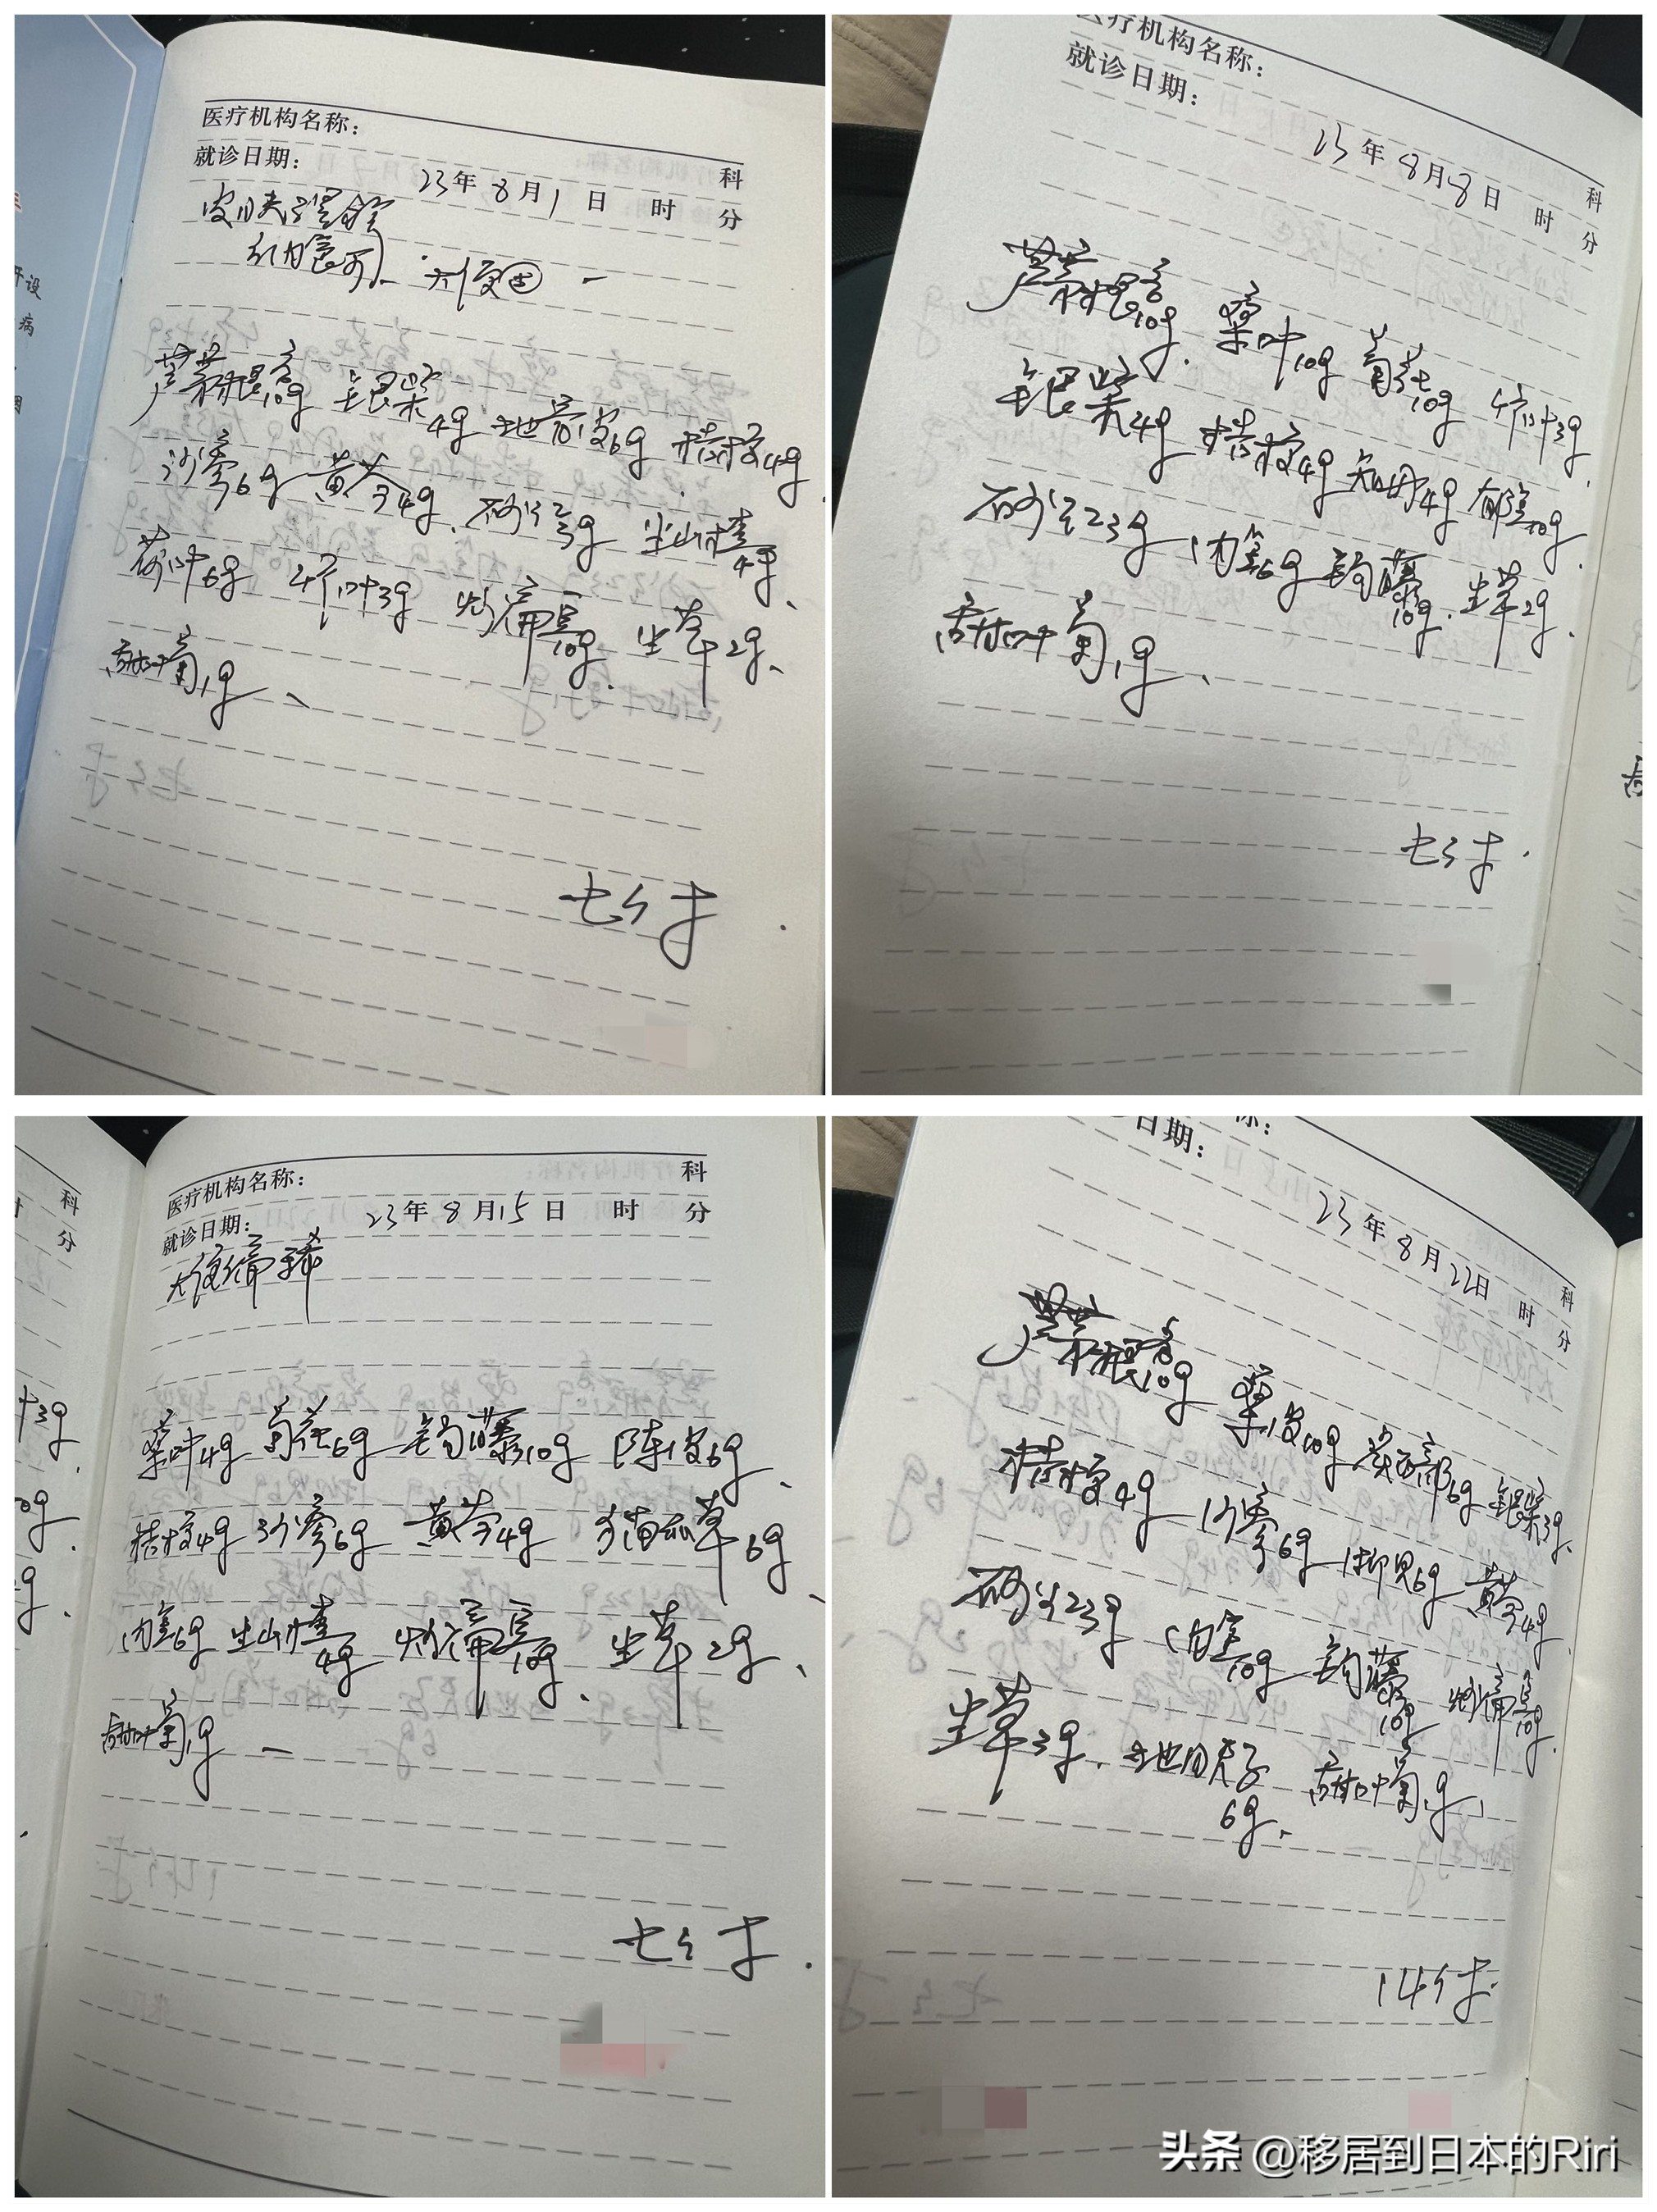 医疗机构名称：
科
就诊日期： 23年8月1日 时 分
皮肤
芦根10g 银柴4g 地骨皮6g 桔梗4g
沙参6g 黄芩4g、砂仁3g 生山楂4g、
荷叶6g 竹叶3g 炒扁豆10g、生草2g、
甜叶菊1g、
七付
开设
病
医疗机构名称：
科
就诊日期： 23年8月8日 时 分
芦根10g、桑叶10g 菊花10g 竹叶3g、
银柴4g 桔梗4g 知母4g 郁金10g、
砂仁3g 内金6g 钩藤10g、生草2g、
甜叶菊1g、
七付
科
分
医疗机构名称：
科
就诊日期： 23年8月15日 时 分
大便偏稀
桑叶4g 菊花6g 钩藤10g 陈皮6g、
桔梗4g 沙参6g 黄芩4g 猫爪草6g、
内金6g 生山楂4g 炒扁豆10g、生草2g、
甜叶菊1g
七付
日期：
科
23年8月22日 时 分
芦根10g 桑皮10g 炙百部6g 银柴3g、
桔梗4g 沙参6g 枳壳6g 黄芩4g、
砂仁3g 内金10g 钩藤10g 炒扁豆10g、
生草3g、地肤子6g、甜叶菊1g、
14付
头条 @移居到日本的Riri